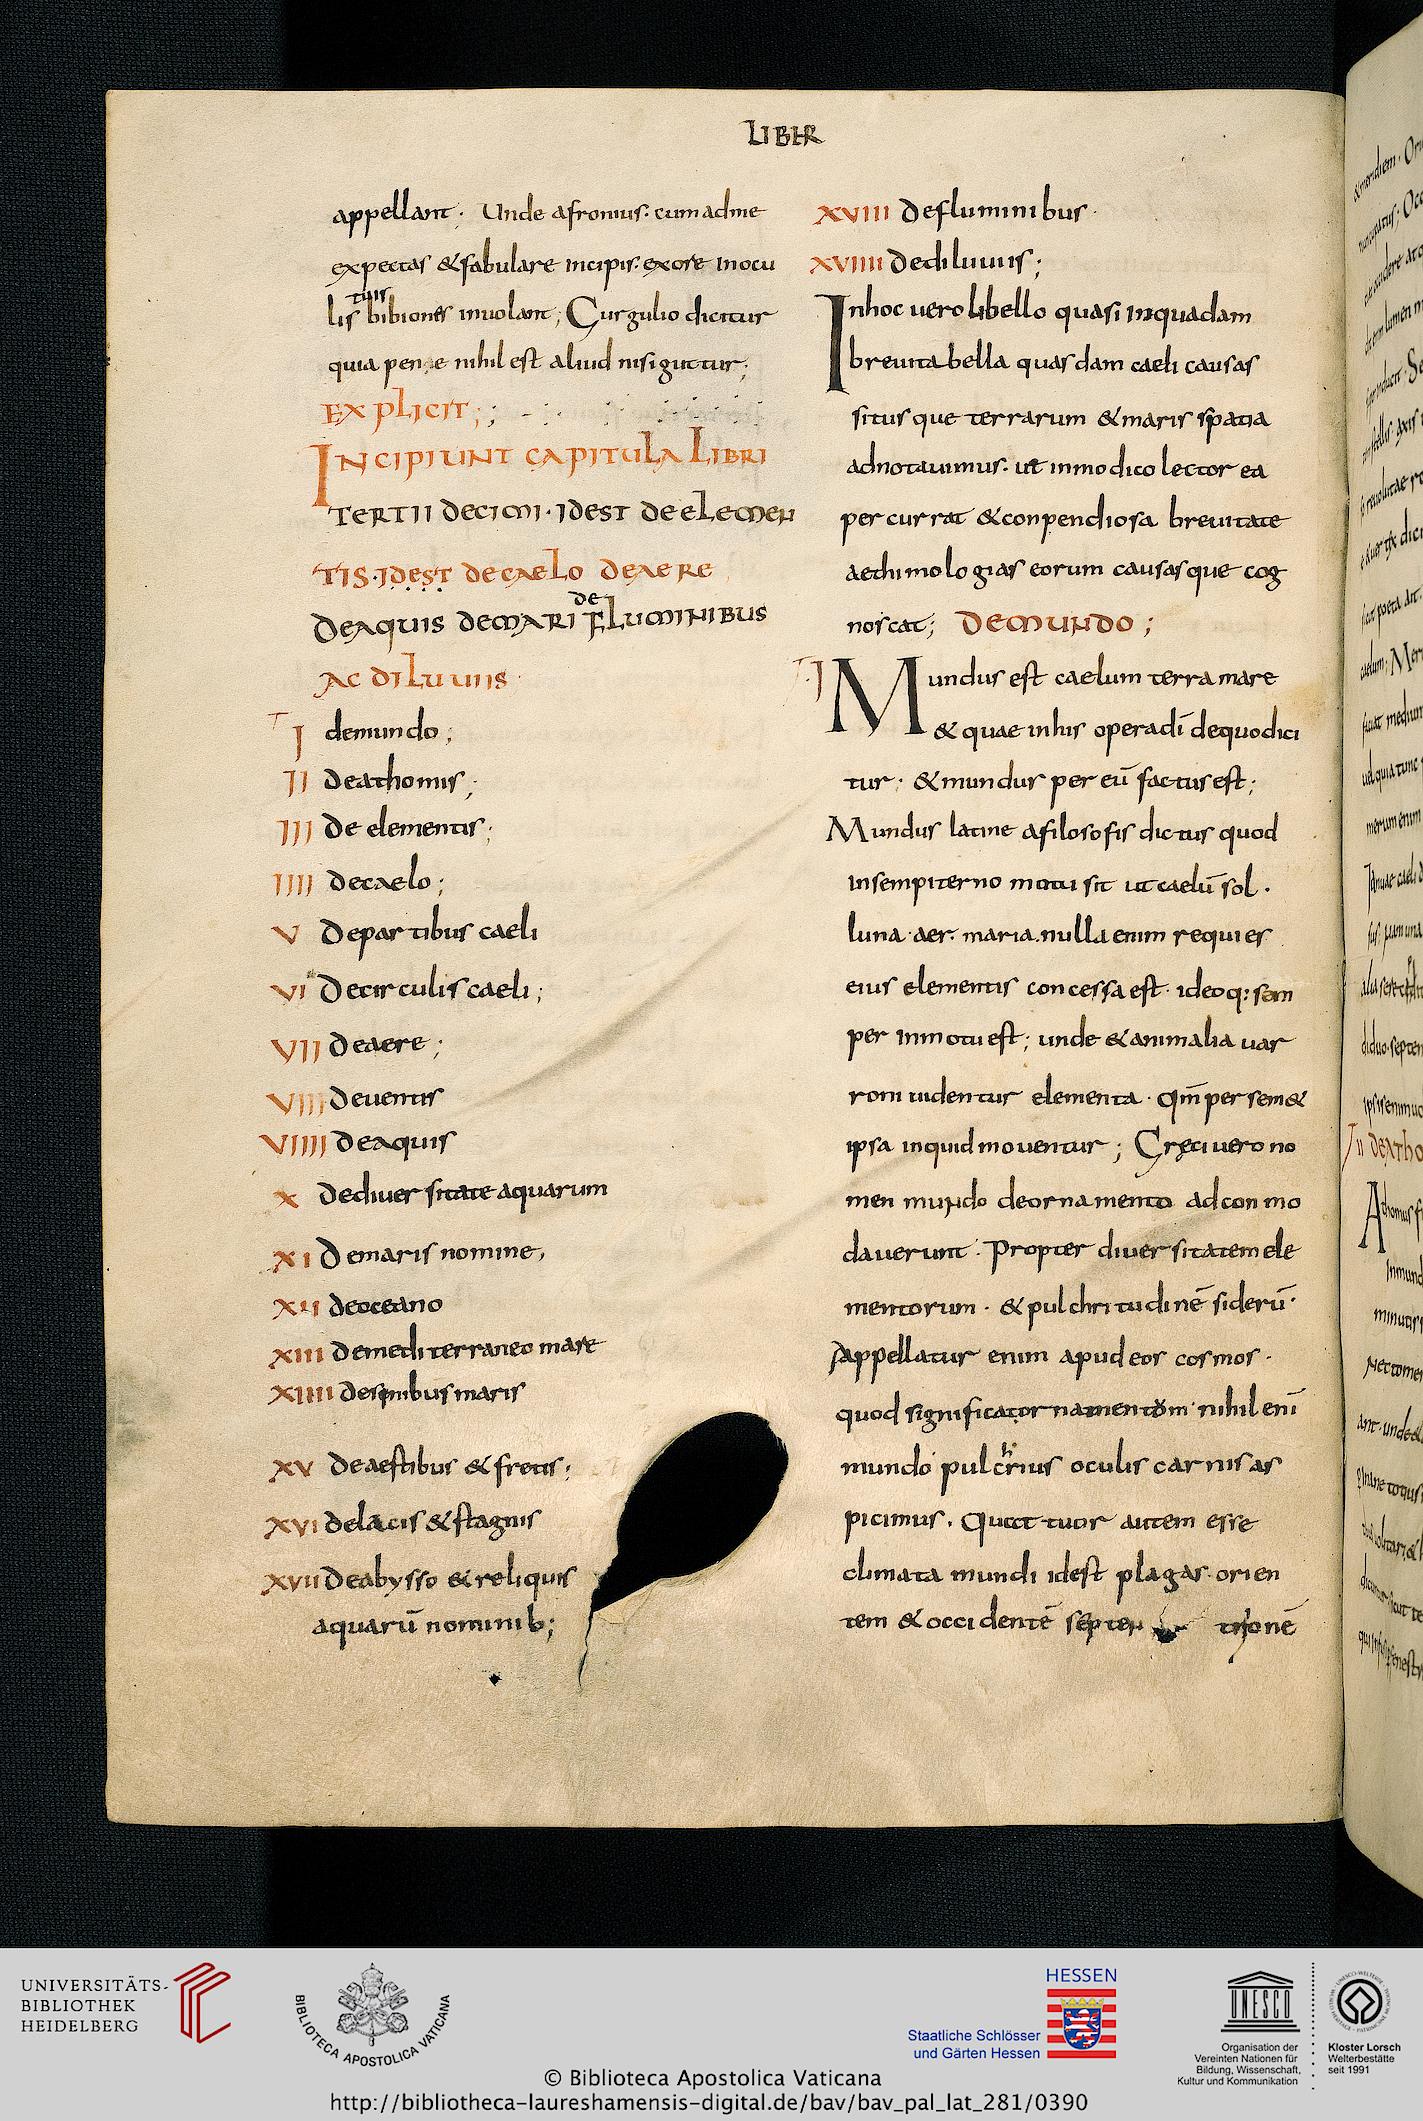 LIBER
appellant; Unde afronius. cum ad me
expectas & fabulare incipis. ex ore in ocu
tuis
lis bibiones inuolant; Curgulio dicitur
quia pene nihil est aliud nisi guttur;
EXPLICIT;;
INCIPIUNT CAPITULA LIBRI
TERTII DECIMI. IDEST DE ELEMEN
TIS. IDEST DE CAELO DE AERE
de
DE AQUIS DE MARI FLUMINIBUS
AC DILUVIIS
I de mundo;
II De athomis;
III De elementis;
IIII De caelo;
V De partibus caeli
VI De circulis caeli;
VII De aere;
VIII De uentis
VIIII De aquis
X De diuersitate aquarum
XI De maris nomine,
XII De oceano
XIII De mediterraneo mare
XIIII De sinibus maris
XV De aestibus & fretis;
XVI De lacis & stagnis
XVII De abysso & reliquis
aquarū nominib;
XVIII De fluminibus
XVIIII De diluuiis;
In hoc uero libello quasi in quadam
breui tabella quasdam caeli causas
situsque terrarum & maris spatia
adnotauimus. ut in modico lector ea
percurrat & conpendiosa breuitate
aethimologias eorum causasque cog
noscat; DE MUNDO;
I Mundus est caelum terra mare
& quae in his opera dī de quo dici
tur; & mundus per eū factus est;
Mundus latine a filosofis dictus quod
in sempiterno motu sit ut caelū sol.
luna. aer. maria. nulla enim requies
eius elementis concessa est. ideoq; sem
per in motu est; unde & animalia uar
roni uidentur elementa. qm̄ per sem&
ipsa inquid mouentur; Gręci uero no
men mundo de ornamento adcommo
dauerunt. Propter diuersitatem ele
mentorum. & pulchritudinē siderū.
Appellatur enim apud eos cosmos.
quod significat ornamentom. nihil enī
h
mundo pulcrius oculis carnis as
picimus. Quattuor autem esse
climata mundi idest plagas. orien
tem & occidentē septen trionē
UNIVERSITÄTS-
BIBLIOTHEK
HEIDELBERG
BIBLIOTECA APOSTOLICA VATICANA
HESSEN
Staatliche Schlösser
und Gärten Hessen
UNESCO
Organisation der
Vereinten Nationen für
Bildung, Wissenschaft,
Kultur und Kommunikation
Kloster Lorsch
Welterbestätte
seit 1991
© Biblioteca Apostolica Vaticana
http://bibliotheca-laureshamensis-digital.de/bav/bav_pal_lat_281/0390